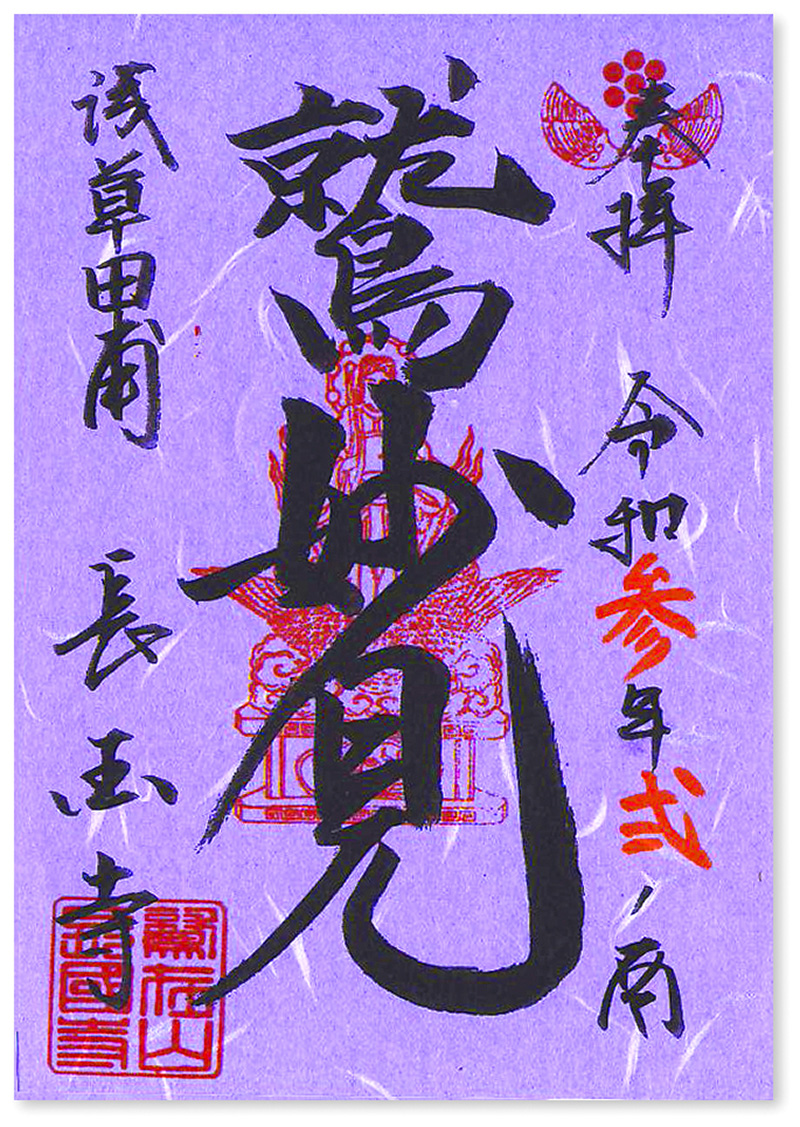 奉拝 令和参年弐ノ酉
鷲妙見
浅草田甫 長国寺
鷲在山
長國寺